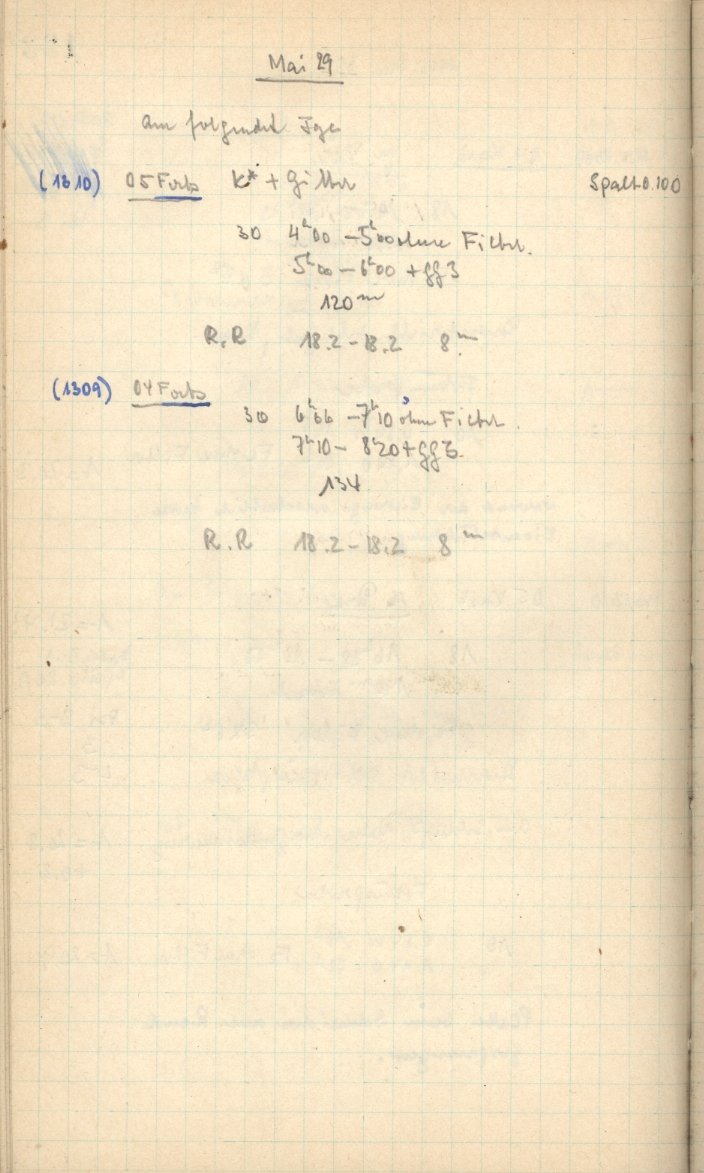 Mai 29
am folgenden Tge
(1310) 05 Forts K* + Gitter Spalt 0.100
30 4ʰ00 – 5ʰ00 ohne Filter.
5ʰ00 – 6ʰ00 + gg3
120ᵐ
R.R 18.2 – 18.2 8ᵐ
(1309) 04 Forts
30 – 7ʰ10 ohne Filter.
7ʰ10 – 8ʰ20 + gg3.
134
R.R 18.2 – 18.2 8ᵐ